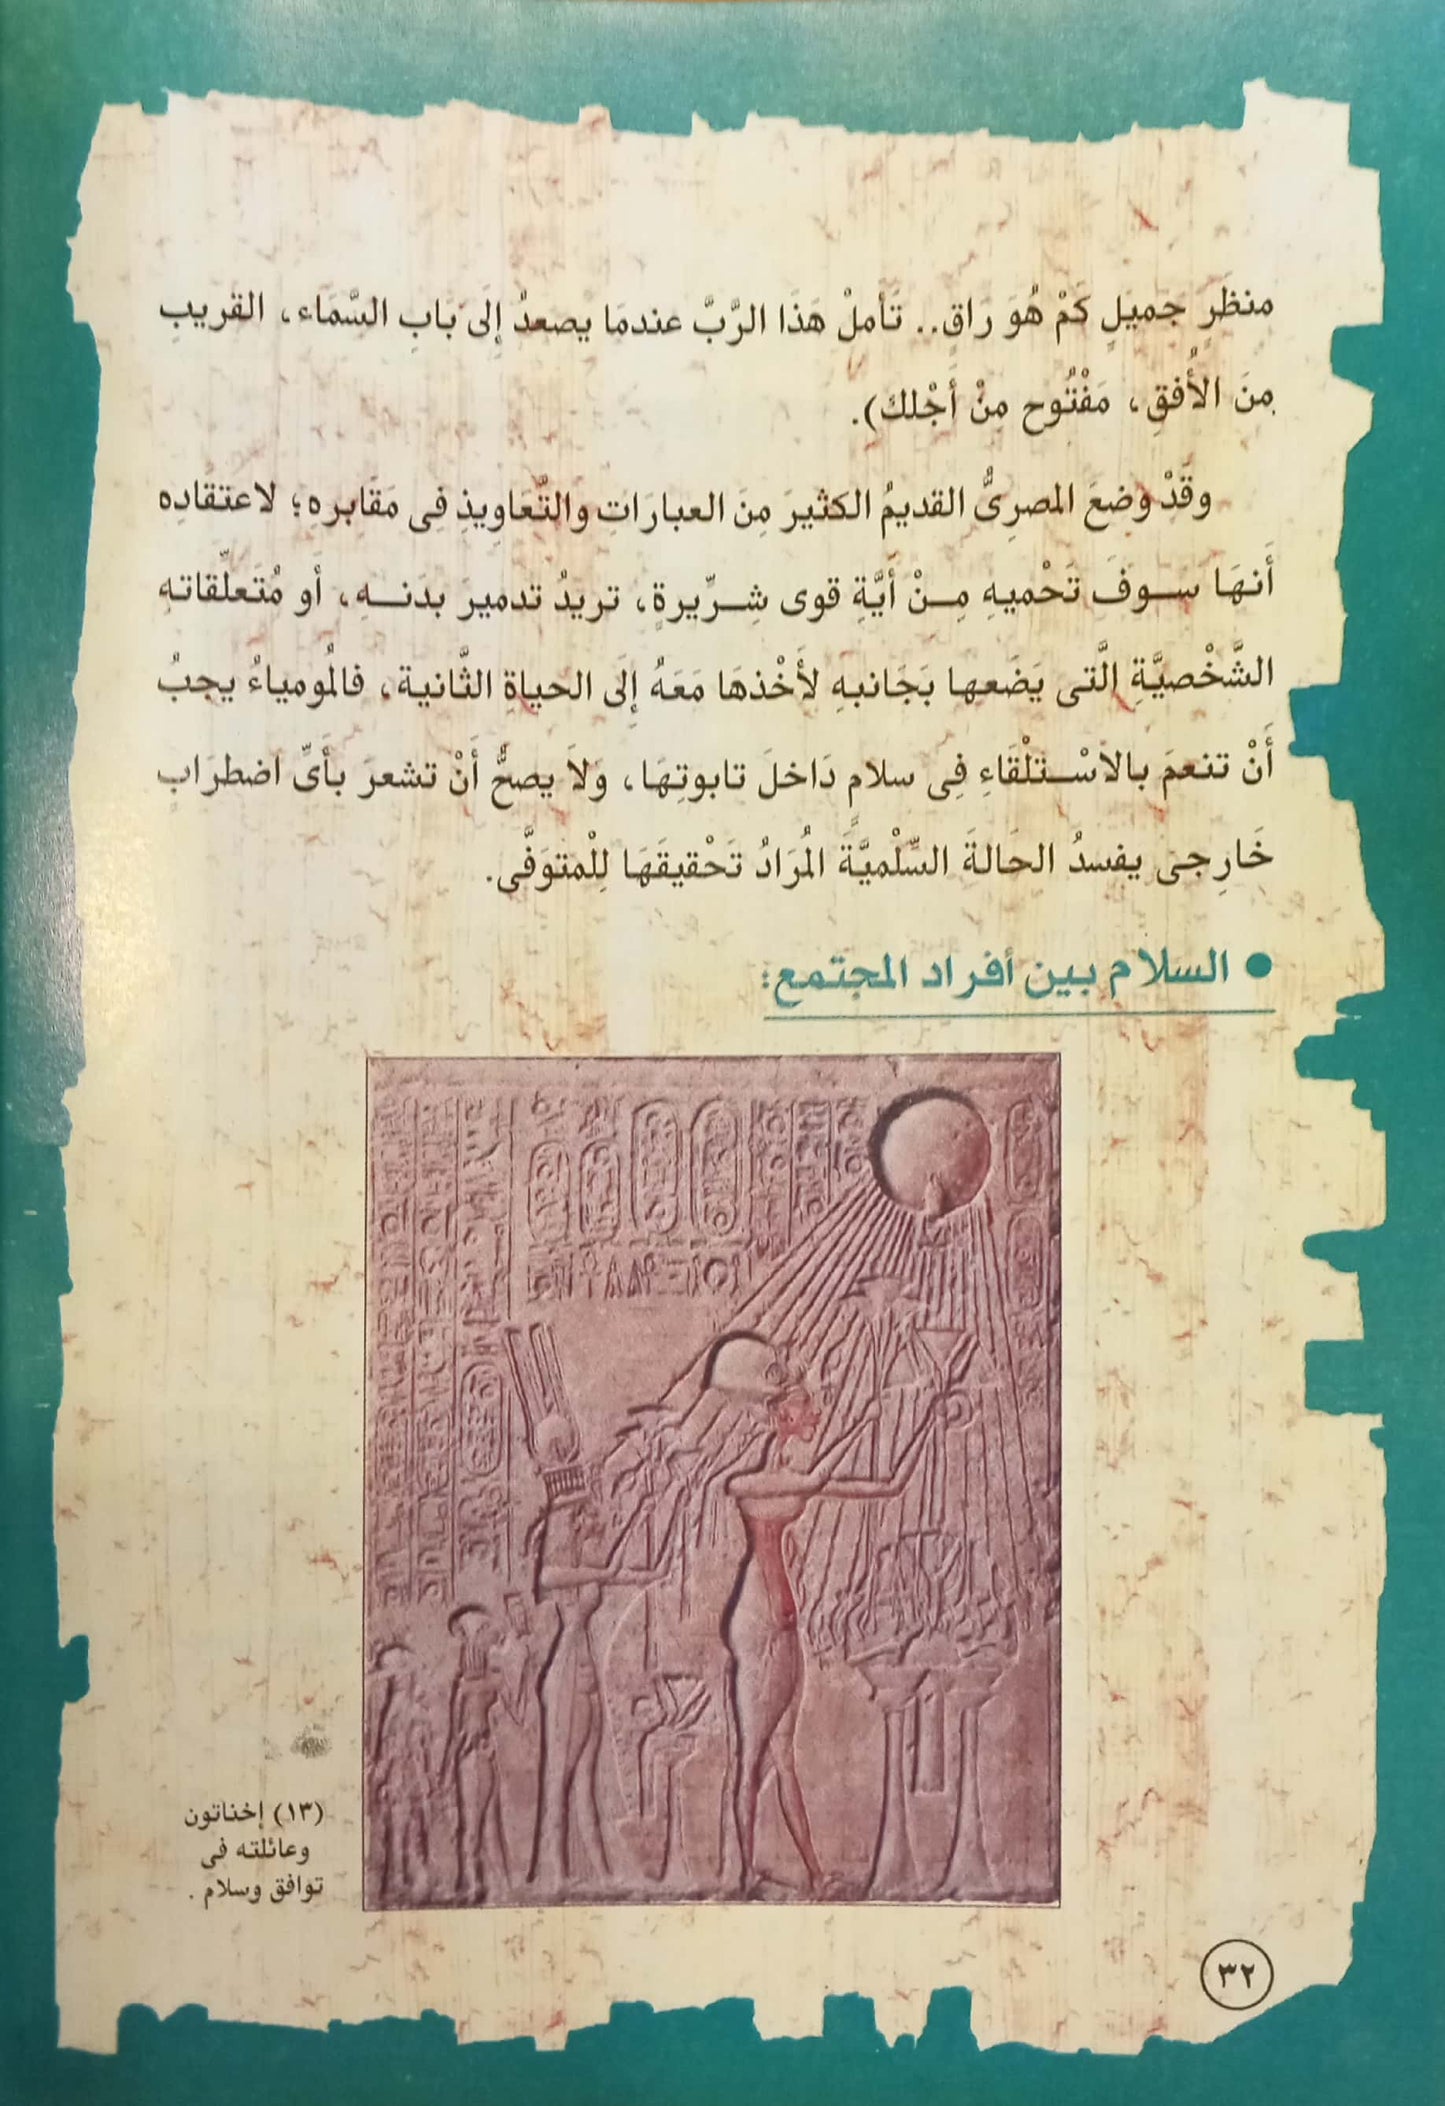 منظَرٍ جَميَلٍ كَمْ هُوَ رَاقٍ.. تَأملْ هَذَا الرَّبَّ عندمَا يصعدُ إِلَى بَابِ السَّمَاء، القريبِ
مِنَ الأُفقِ، مَفْتُوح مِنْ أَجْلكَ).
وقَدْ وضعَ المصرِىُّ القديمُ الكثيرَ مِنَ العبارَاتِ وَالتَّعَاوِيذِ فِى مَقَابرهِ؛ لاعتقَادِه
أَنهَا سَوفَ تَحْميهِ مِنْ أَيَّةِ قوى شِرِّيرةٍ، تريدُ تدميرَ بدَنهِ، أَو مُتَعلِّقاتهِ
الشَّخْصيَّةِ الَّتى يَضَعها بَجَانبهِ لأَخْذهَا مَعَهُ إِلَى الحياةِ الثَّانية، فالُمومياءُ يجبُ
أَنْ تنعمَ بالاَسْتلْقَاءِ فِى سلامٍ دَاخلَ تابوتِهَا، وَلاَ يصحُّ أَنْ تشعرَ بأَىِّ اضطرَابٍ
خَارِجى يفسدُ الحَالةَ السِّلْميَّةَ الُمرَادُ تَحْقيقَهَا لِلْمتوَفَّى.
● السلام بين أفراد المجتمع:
(١٣) إخناتون
وعائلته فى
توافق وسلام .
٣٢